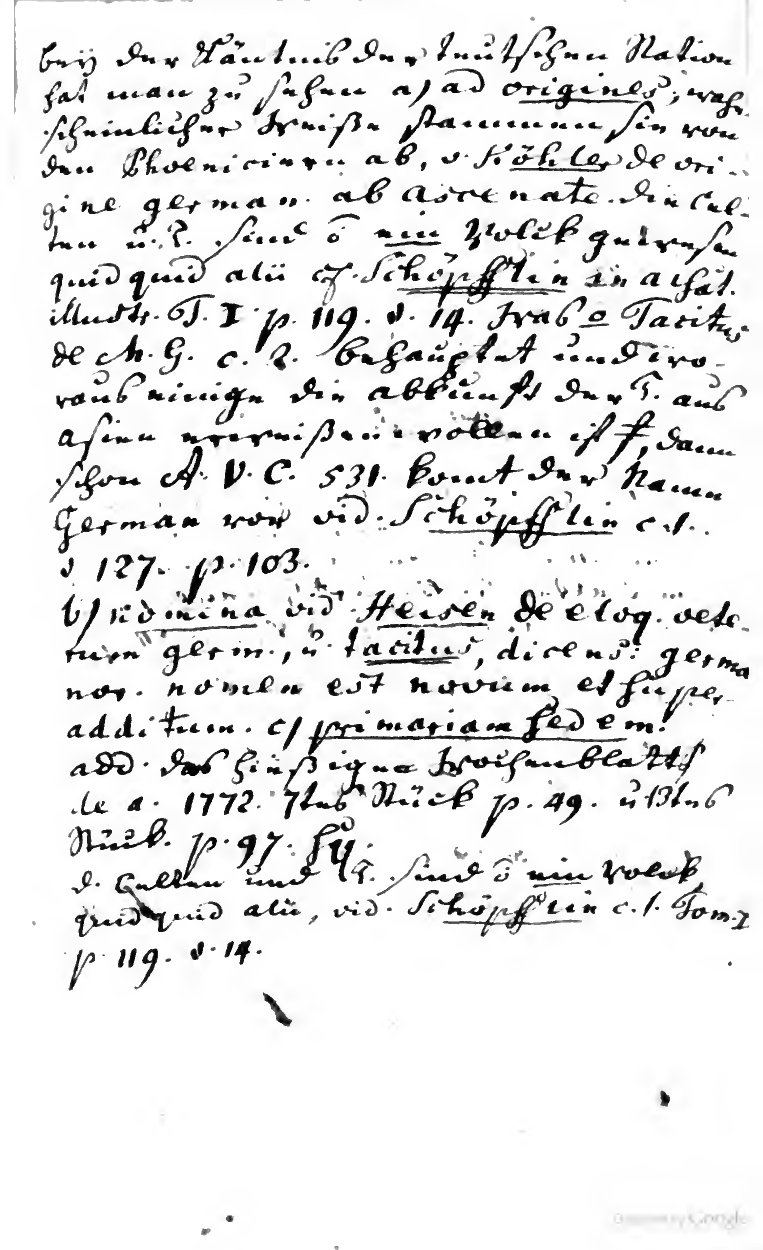 bey der Käntnis der teutschen Nation
hat man zu sehen a) ad origines, wahr-
scheinlicher Weiße stammen sie von
den Phoeniciern ab, v. Köhler de ori-
gine german. ab Ascenate. die Cel-
ten u. T. sind ō ein Volck gewesen
quidquid alii cf. Schöpfflin in Alsat.
illustr. T. I p. 119. §. 14. Was o Tacitus
de M. G. c. 2. behauptet und wo-
raus einige die abkunft der T. aus
Asien erweißen wollen ist f, dann
schon A. V. C. 531. komt der Name
German vor vid. Schöpfflin c. l.
§ 127. p. 103.
b) nomina vid. Heisen de eloq. vete-
rum germ., u. tacitus, dicens: germa
nor. nomen est novum et super-
additum. c) primariam sedem.
add. das hießige Wochenblatt
de a. 1772. 7tes Stück p. 49. u 13tes
Stück. p. 97. sq.
d. Celten und T. sind ō ein Volck
quidquid alii, vid. Schöpfflin c. l. Tom. I
p 119. §. 14.
Google